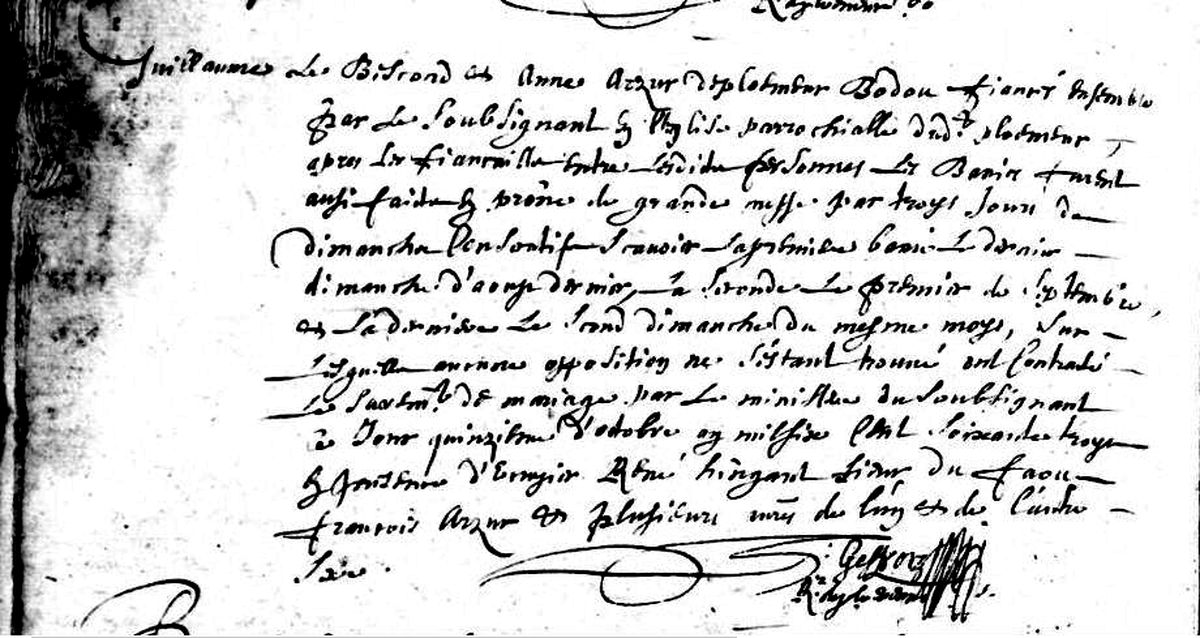 Guillaume Le Bescond et Anne Arzur de ploemeur Bodou fiancés ensemble
par Le Soubsignant en l'Eglise parrochialle dudt ploemeur
apres Les fiancaille entre Lesdite personnes Les Banies furent
ausi faite en prône de grande messe par troys Jours de
dimanche Consentifs Scavoir La premiere banie Le dernier
dimanche d'aoust dernier, La Seconde Le premier de Septembre,
et La derniere Le Scond dimanche du mesme moys, Sur
Lesquelle aucune opposition ne S'estant trouvé ont Contracté
Le Sacremt de mariage par Le ministere du Soubsignant
ce Jour quinzieme d'octobre mil Six Cent Soixante troys
en presence d' René hingant Sieur du faou
francois Arzur et plusieurs de l'un et de l'autre
Sexe.